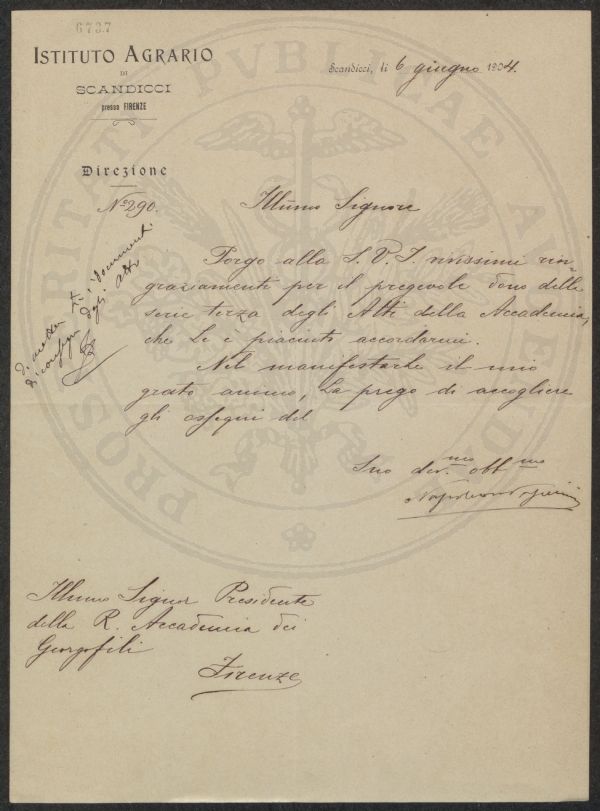 6737
ISTITUTO AGRARIO
DI
SCANDICCI
presso FIRENZE
Direzione
Scandicci, li 6 giugno 1904.
N.º 290.
Illumo Signore
Porgo alla S. V. I. vivissimi rin-
graziamenti per il pregevole dono della
serie terza degli Atti della Accademia,
che Le è piaciuto accordarmi.
Nel manifestarle il mio
grato animo, La prego di accogliere
gli ossequi del
Suo dev.mo obbmo
Napoleone
Illumo Signor Presidente
della R. Accademia dei
Georgofili
Firenze
i documenti
di consegna degli atti
PROSPERITATI PVBLICAE AVGENDAE